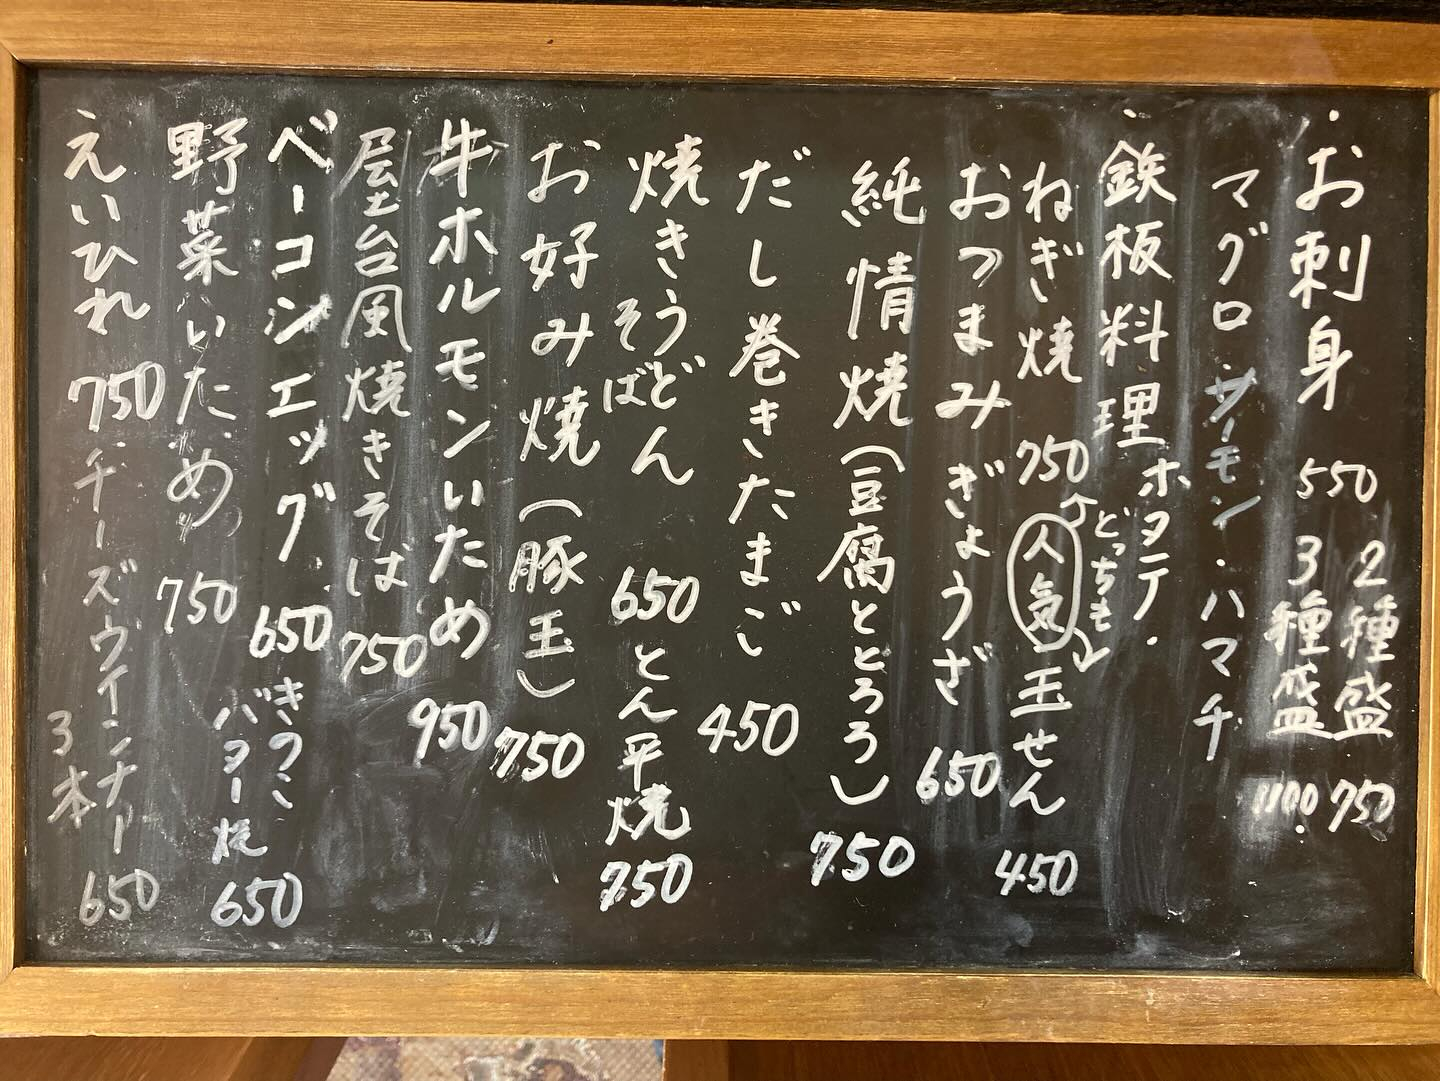 ・お刺身 550 2種盛 750
3種盛 1100.
マグロ・サーモン・ハマチ
ホタテ・
・鉄板料理
ねぎ焼 750 どっちも 人気 玉せん 450
おつまみぎょうざ 650
純情焼(豆腐ととろろ) 750
だし巻きたまご 450
焼きうどん
そば 650 とん平焼 750
お好み焼(豚玉) 750
牛ホルモンいため 950
屋台風焼きそば 750
ベーコンエッグ 650 きのこ
バター焼 650
野菜いため 750
えいひれ 750・チーズウインナー
3本 650